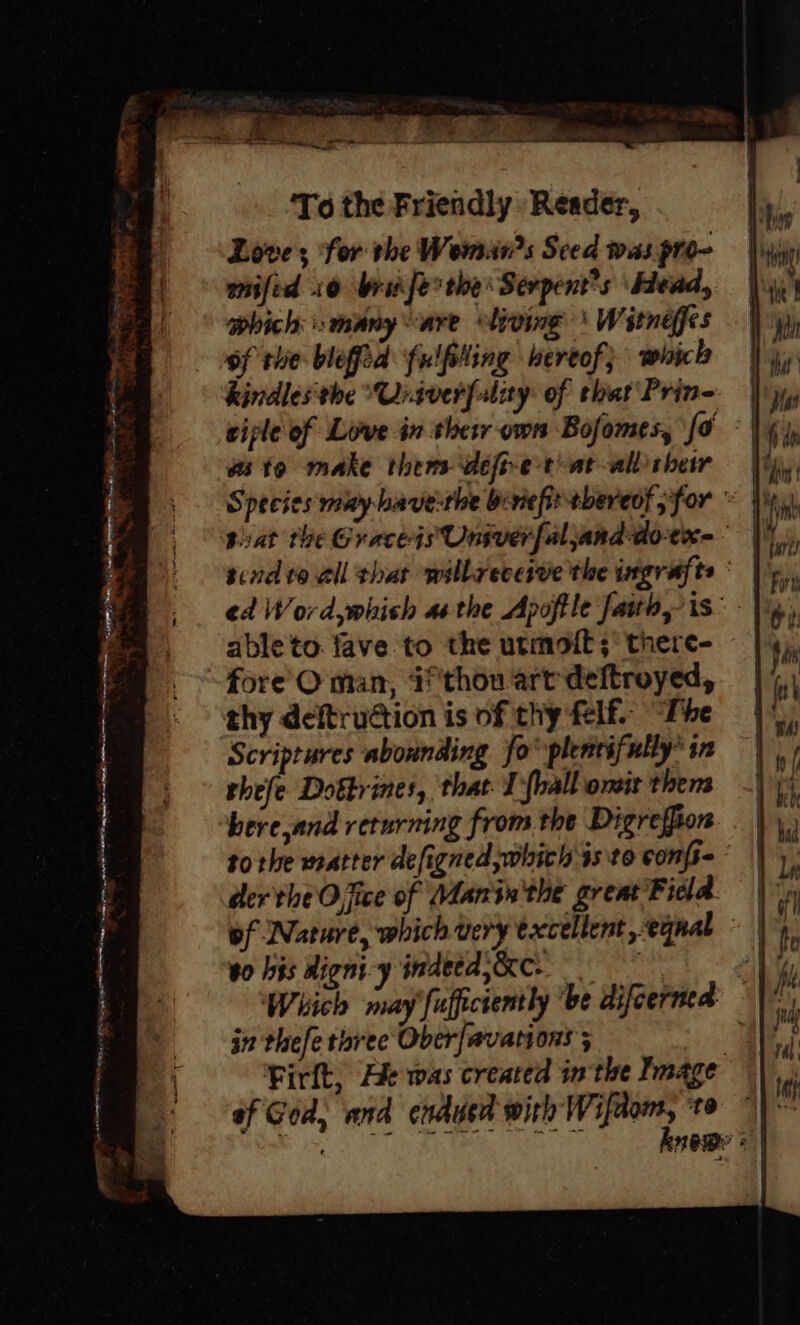 To the Friendly Reader,
Love; for the Woman's Seed was pro-
miſed to bruiſe the Serpent's Head,
which many are living Witneſſes
of the bleſſed fulfilling hereof; which
kindles the Univerſality of that Prin-
ciple of Love in their own Boſomes, ſo
as to make them deſire that all their
Species may have the benefit thereof; for
that the Grace is Univerſal, and do ex-
tend to all that will receive the ingraft-
ed Word, which as the Apoſtle ſaith, is
able to ſave to the utmoſt; there-
fore O man, if thou art deſtroyed,
thy deſtruction is of thy ſelf. The
Scriptures abounding ſo plentifully in
theſe Doctrines, that I ſhall omit them
here, and returning from the Digreſſion
to the matter deſigned, which is to conſi-
der the Office of Man in the great Field
of Nature, which very excellent, equal
to his digni-y indeed, &c.
Which may ſufficiently be diſcerned
in theſe three Oberſavations;
Firſt, He was created in the Image
of God, and endued with Wiſdom, to
know